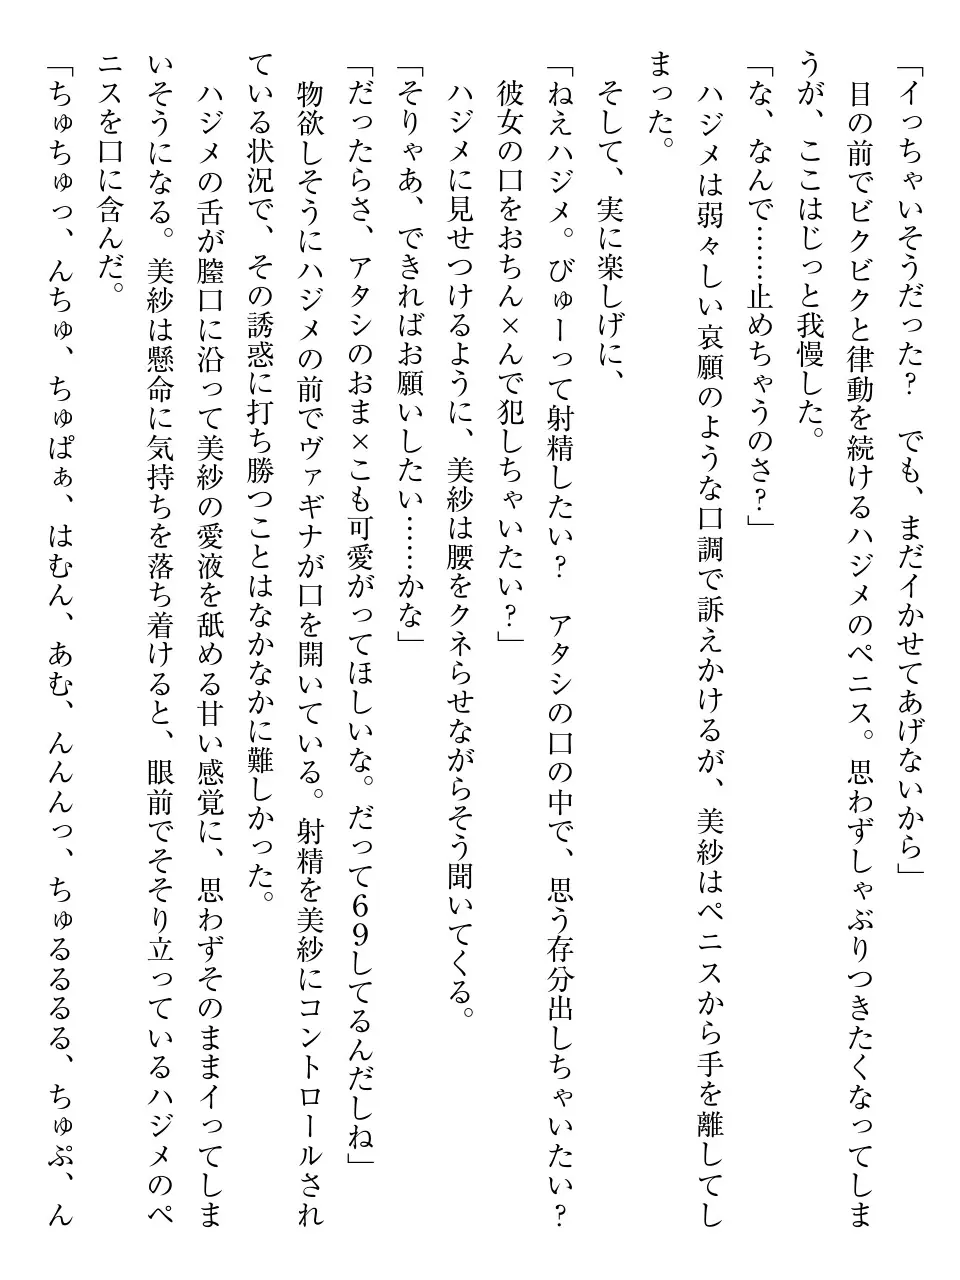 「イっちゃいそうだった？　でも、まだイかせてあげないから」
　目の前でビクビクと律動を続けるハジメのペニス。思わずしゃぶりつきたくなってしま
うが、ここはじっと我慢した。
「な、なんで……止めちゃうのさ？」
　ハジメは弱々しい哀願のような口調で訴えかけるが、美紗はペニスから手を離してし
まった。
　そして、実に楽しげに、
「ねえハジメ。びゅーって射精したい？　アタシの口の中で、思う存分出しちゃいたい？
彼女の口をおちん×んで犯しちゃいたい？」
　ハジメに見せつけるように、美紗は腰をクネらせながらそう聞いてくる。
「そりゃあ、できればお願いしたい……かな」
「だったらさ、アタシのおま×こも可愛がってほしいな。だって６９してるんだしね」
　物欲しそうにハジメの前でヴァギナが口を開いている。射精を美紗にコントロールされ
ている状況で、その誘惑に打ち勝つことはなかなかに難しかった。
　ハジメの舌が膣口に沿って美紗の愛液を舐める甘い感覚に、思わずそのままイってしま
いそうになる。美紗は懸命に気持ちを落ち着けると、眼前でそそり立っているハジメのペ
ニスを口に含んだ。
「ちゅちゅっ、んちゅ、ちゅぱぁ、はむん、あむ、んんんっ、ちゅるるるる、ちゅぷ、ん